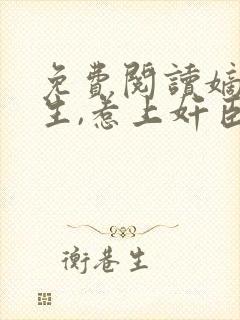 免費閱讀嫡
生,惹上奸臣
衡巷生